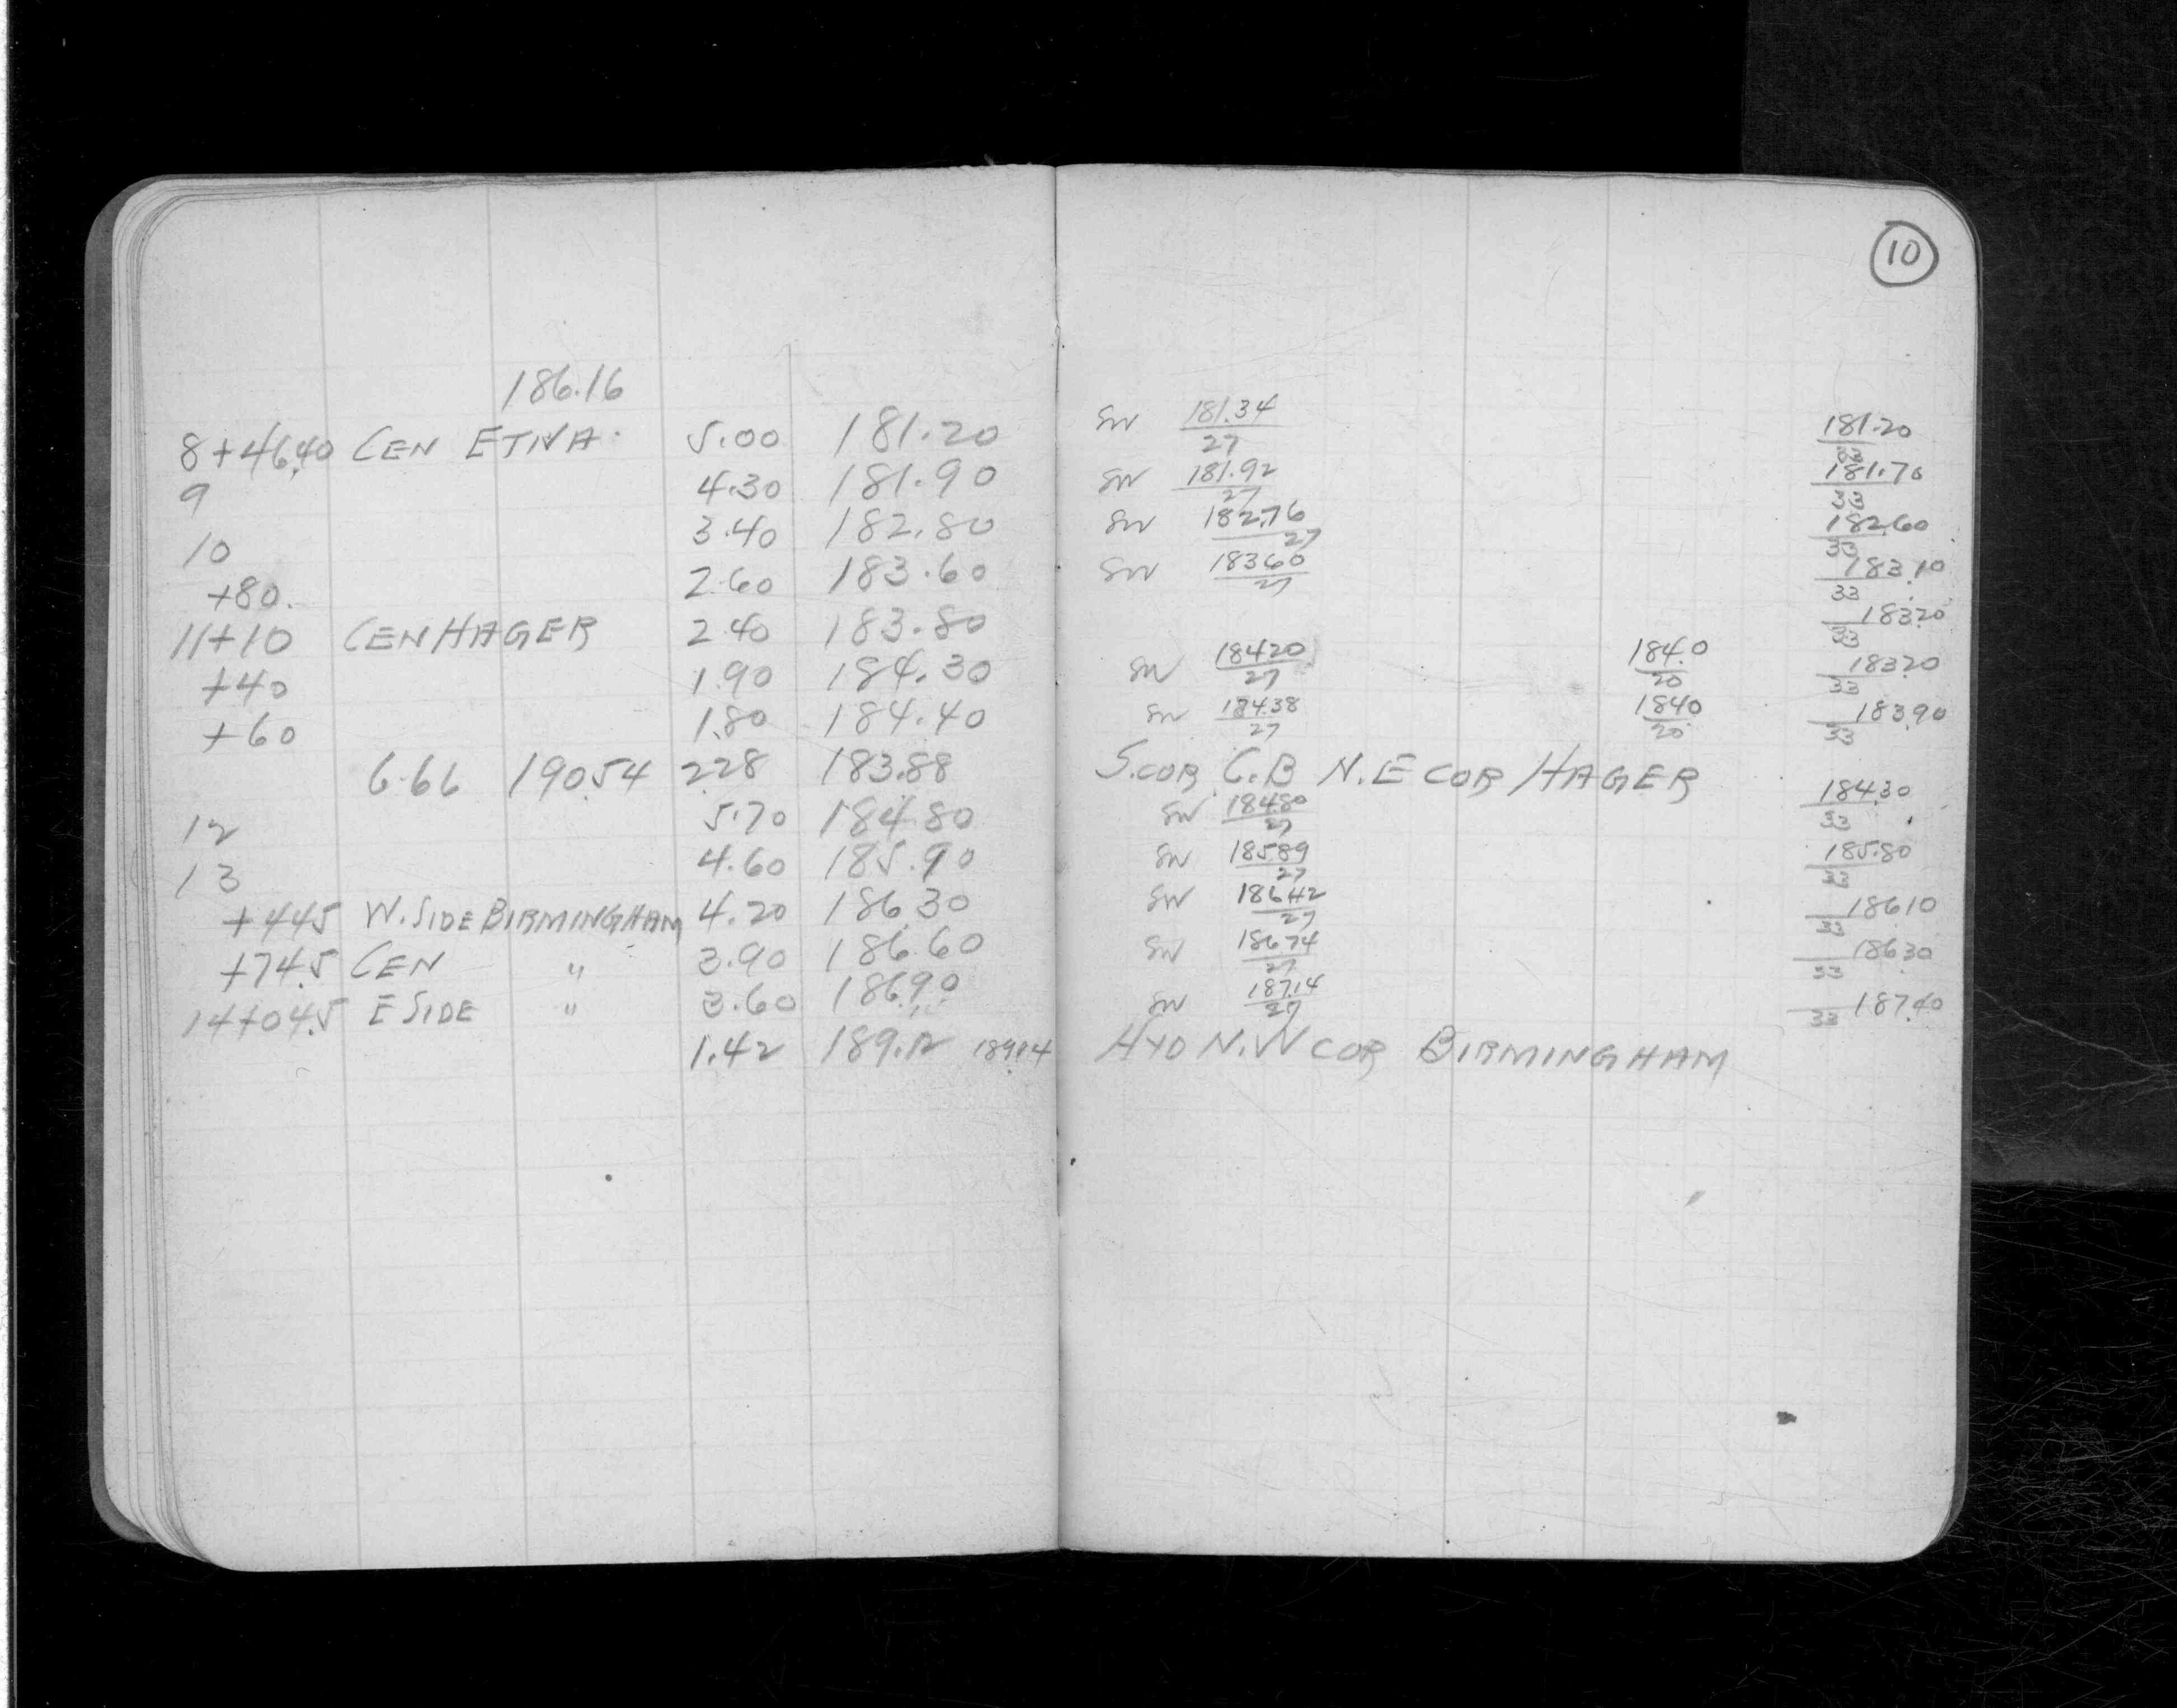 10
186.16
8+46.40 CEN ETNA 5.00 181.20 SW 181.34/27 181.20/33
9 4.30 181.90 SW 181.92/27 181.70/33
10 3.40 182.80 SW 182.76/27 182.60/33
+80. 2.60 183.60 SW 183.60/27 183.10/33
11+10 CEN HAGER 2.40 183.80 183.20/33
+40 1.90 184.30 SW 184.20/27 184.0/20 183.20/33
+60 1.80 184.40 SW 184.38/27 184.0/20 183.90/33
6.66 190.54 2.28 183.88 S.COR C.B N.E COR HAGER
12 5.70 184.80 SW 184.80/27 184.30/33
13 4.60 185.90 SW 185.89/27 185.80/33
+44.5 W. SIDE BIRMINGHAM 4.20 186.30 SW 186.42/27 186.10/33
+74.5 CEN " 3.90 186.60 SW 186.74/27 186.30/33
14+04.5 E SIDE " 3.60 186.90 SW 187.14/27 187.40/33
1.42 189.12 189.14 HYD N.W COR BIRMINGHAM